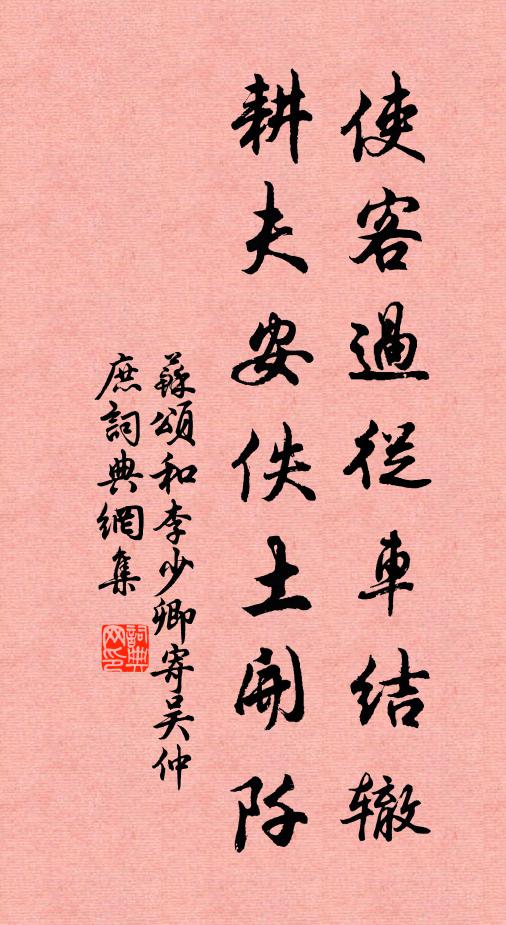 使客過從車結辙
耕夫安佚土開阡
蘇頌和李少卿寄吴仲
庶詞典網集
詞典网印